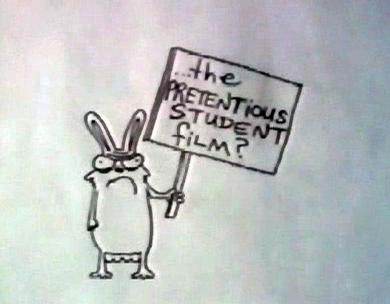 ...the
PRETENTIOUS
STUDENT
fiLM?